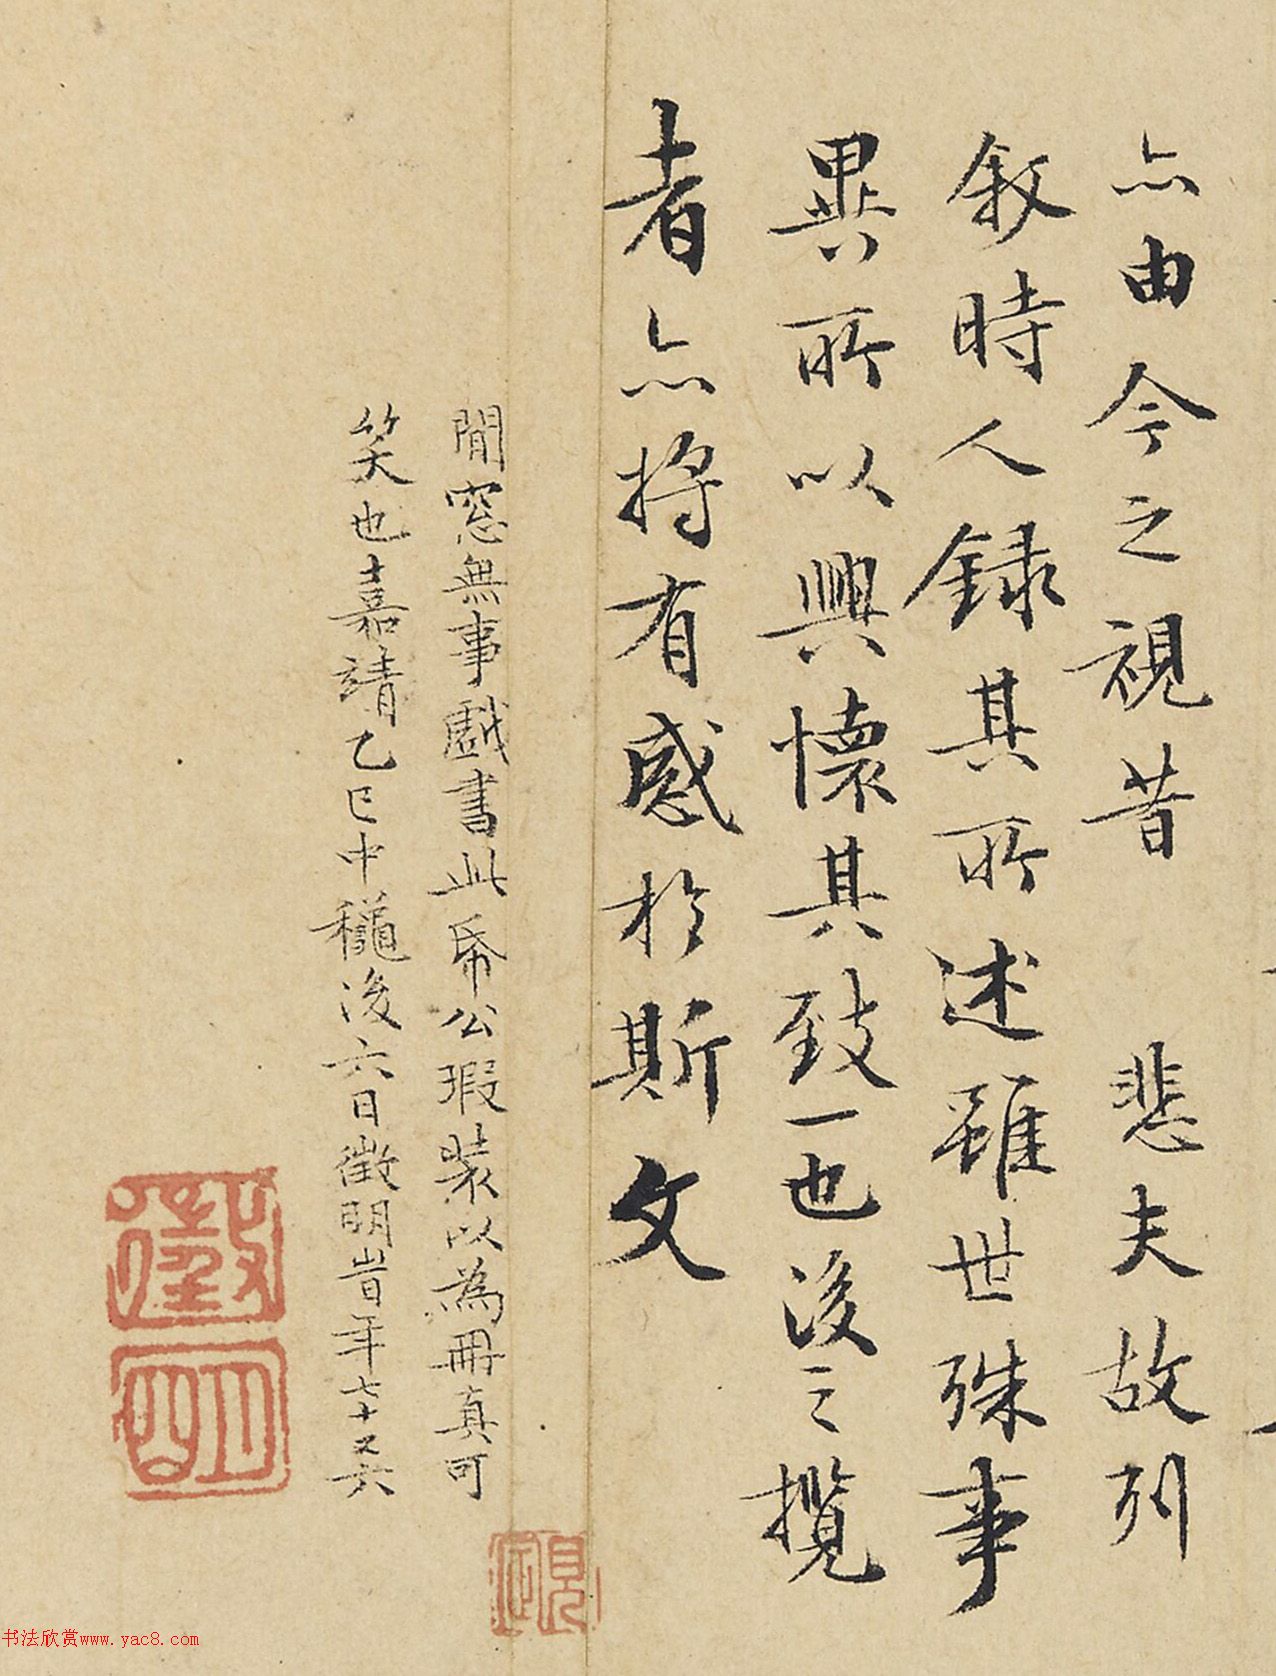 亦由今之視昔 悲夫故列
叙時人録其所述雖世殊事
異所以興懷其致一也後之攬
者亦將有感於斯文
閒窓無事戯書此帋公瑕装以為冊真可
笑也嘉靖乙巳中穐後六日徵明峕年七十又六
徵
明
书法欣赏www.yac8.com